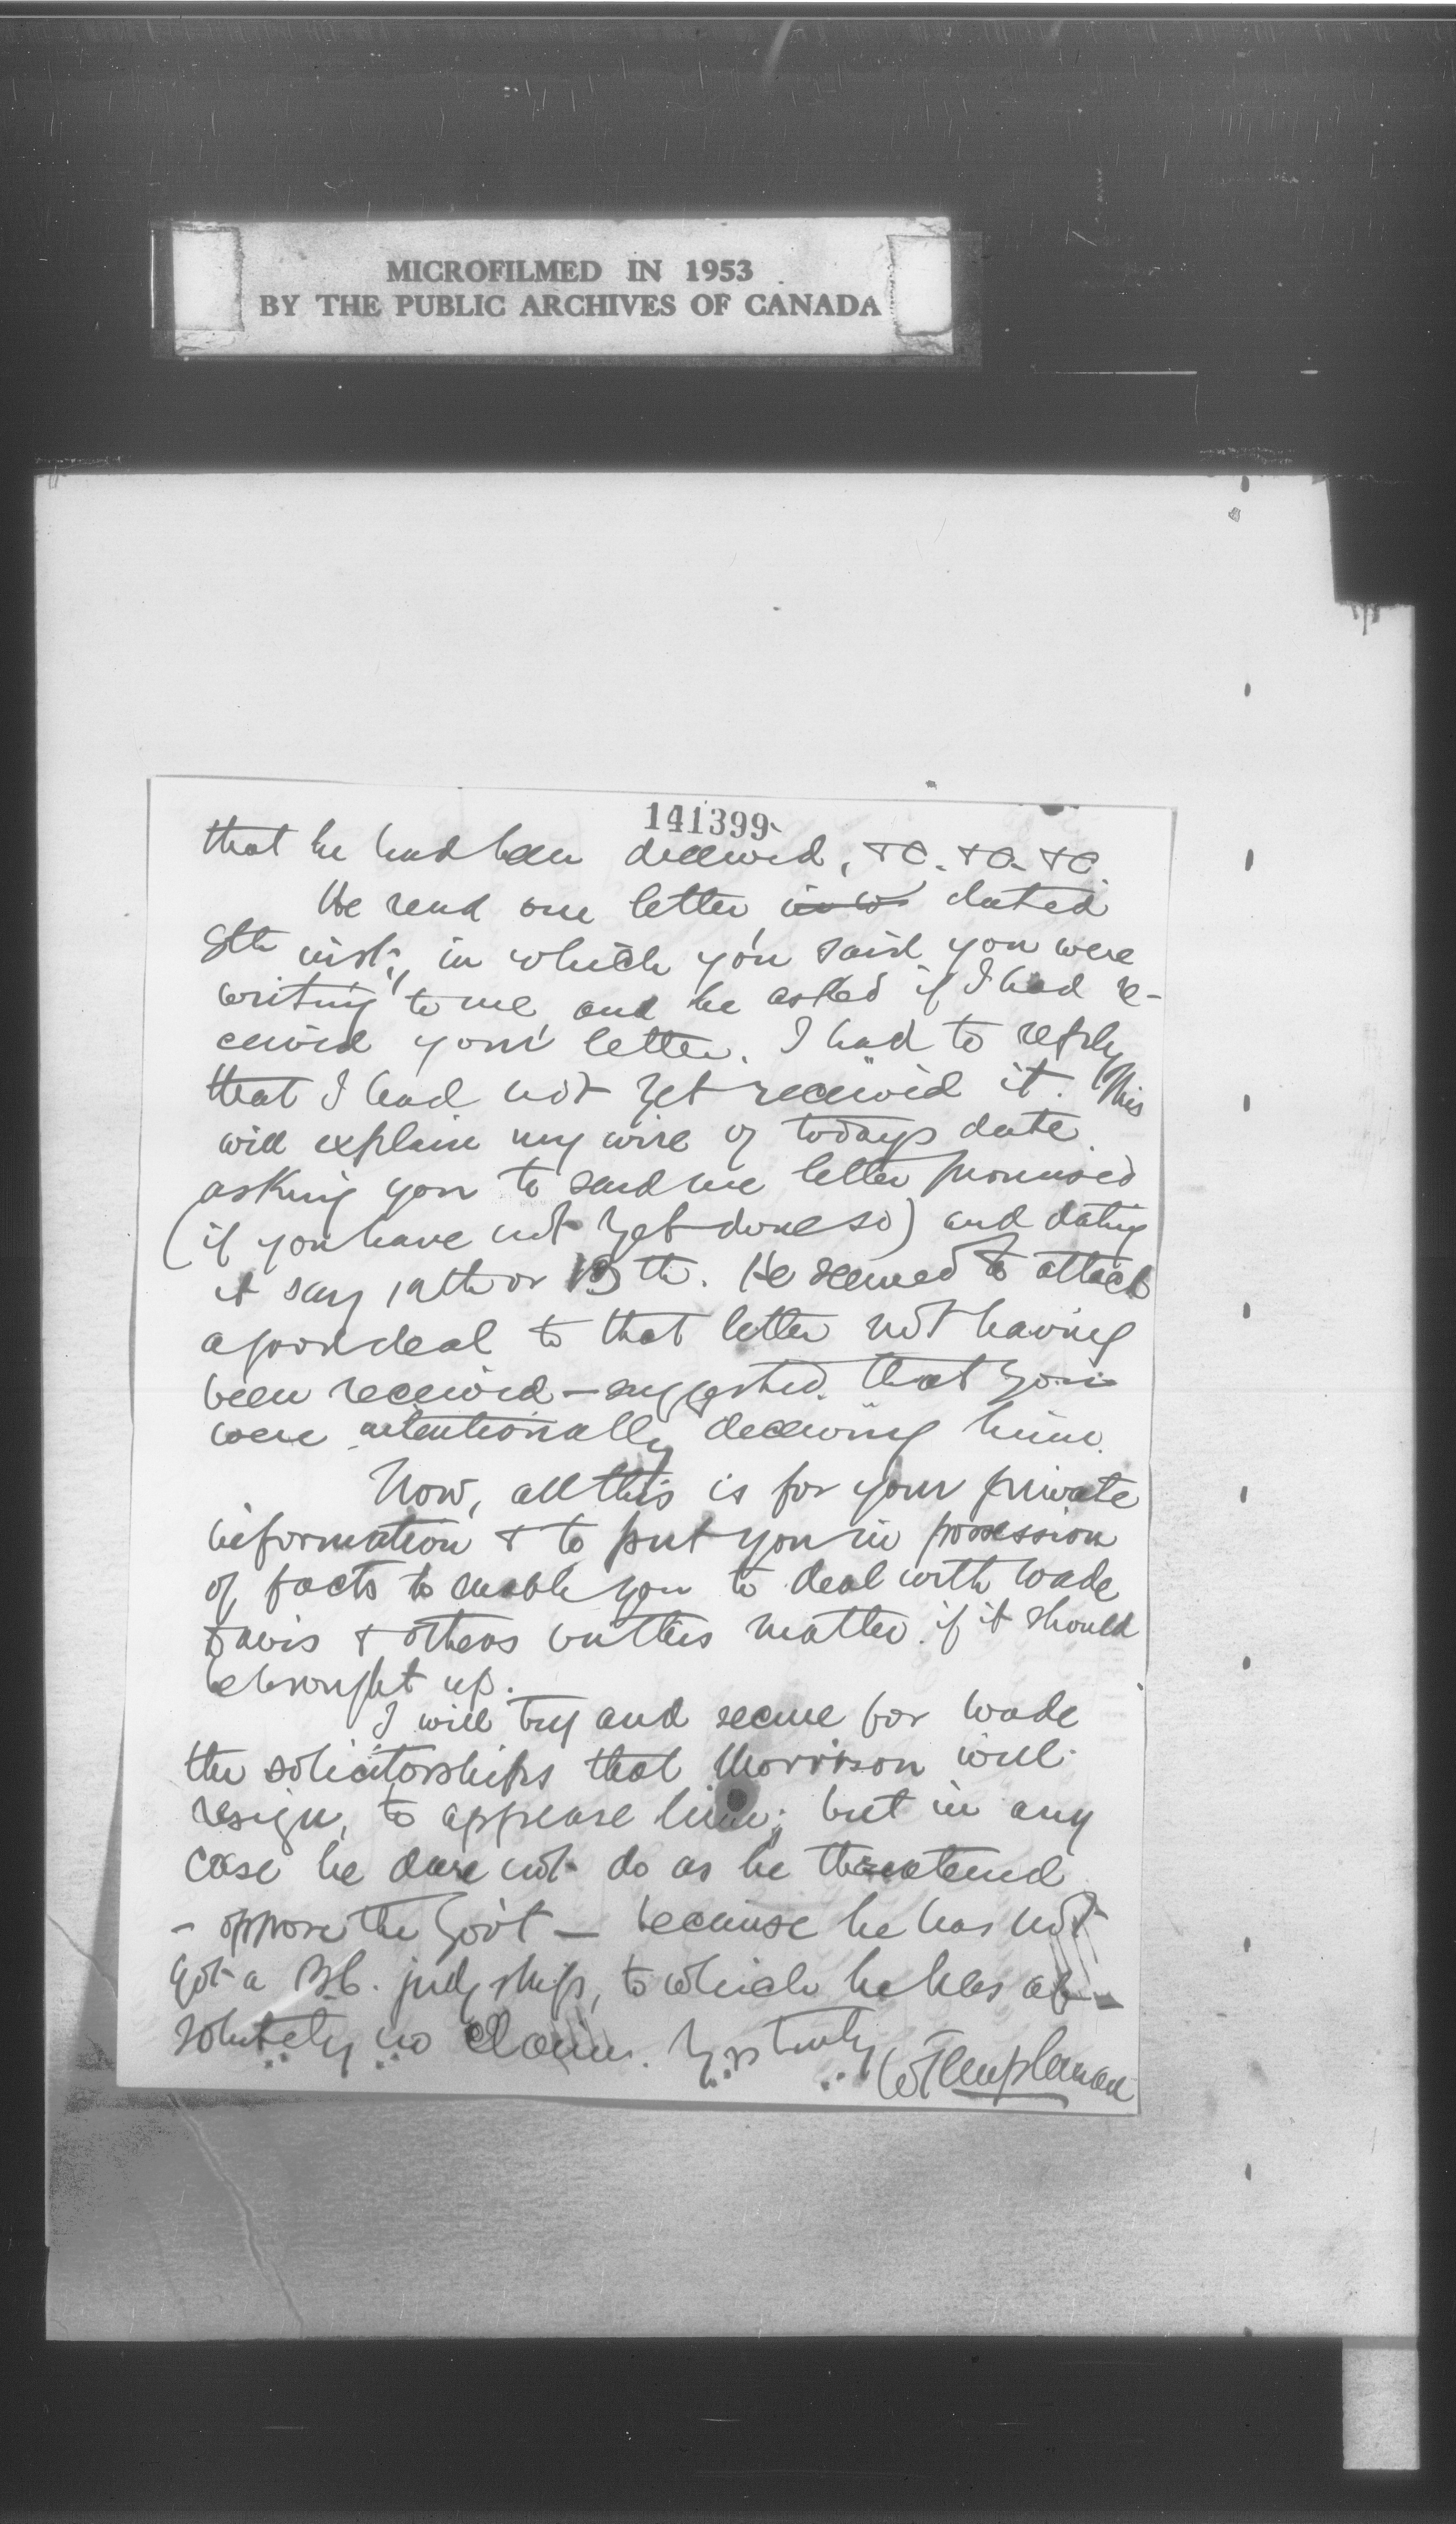 MICROFILMED IN 1953
BY THE PUBLIC ARCHIVES OF CANADA
141399
that he had been deceived, &c. &c. &c.
He read one letter dated
8th inst; in which you said you were
writing to me and he asked if I had re-
ceived your letter. I had to reply
that I had not yet received it. This
will explain my wire of todays date
asking you to send me letter promised
(if you have not yet done so) and dating
it say 12th or 13th. He seemed to attach
a good deal to that letter not having
been received — suggested that you
were intentionally deceiving him.
Now, all this is for your private
information & to put you in possession
of facts to enable you to deal with Wade
Davis & others on this matter if it should
be brought up.
I will try and secure for Wade
the solicitorships that Morrison will
resign, to appease him; but in any
case he dare not do as he threatened
- oppose the Gov't — because he has not
got a B.C. judgship, to which he has ab-
solutely no claim. Yrs truly
W Templeman